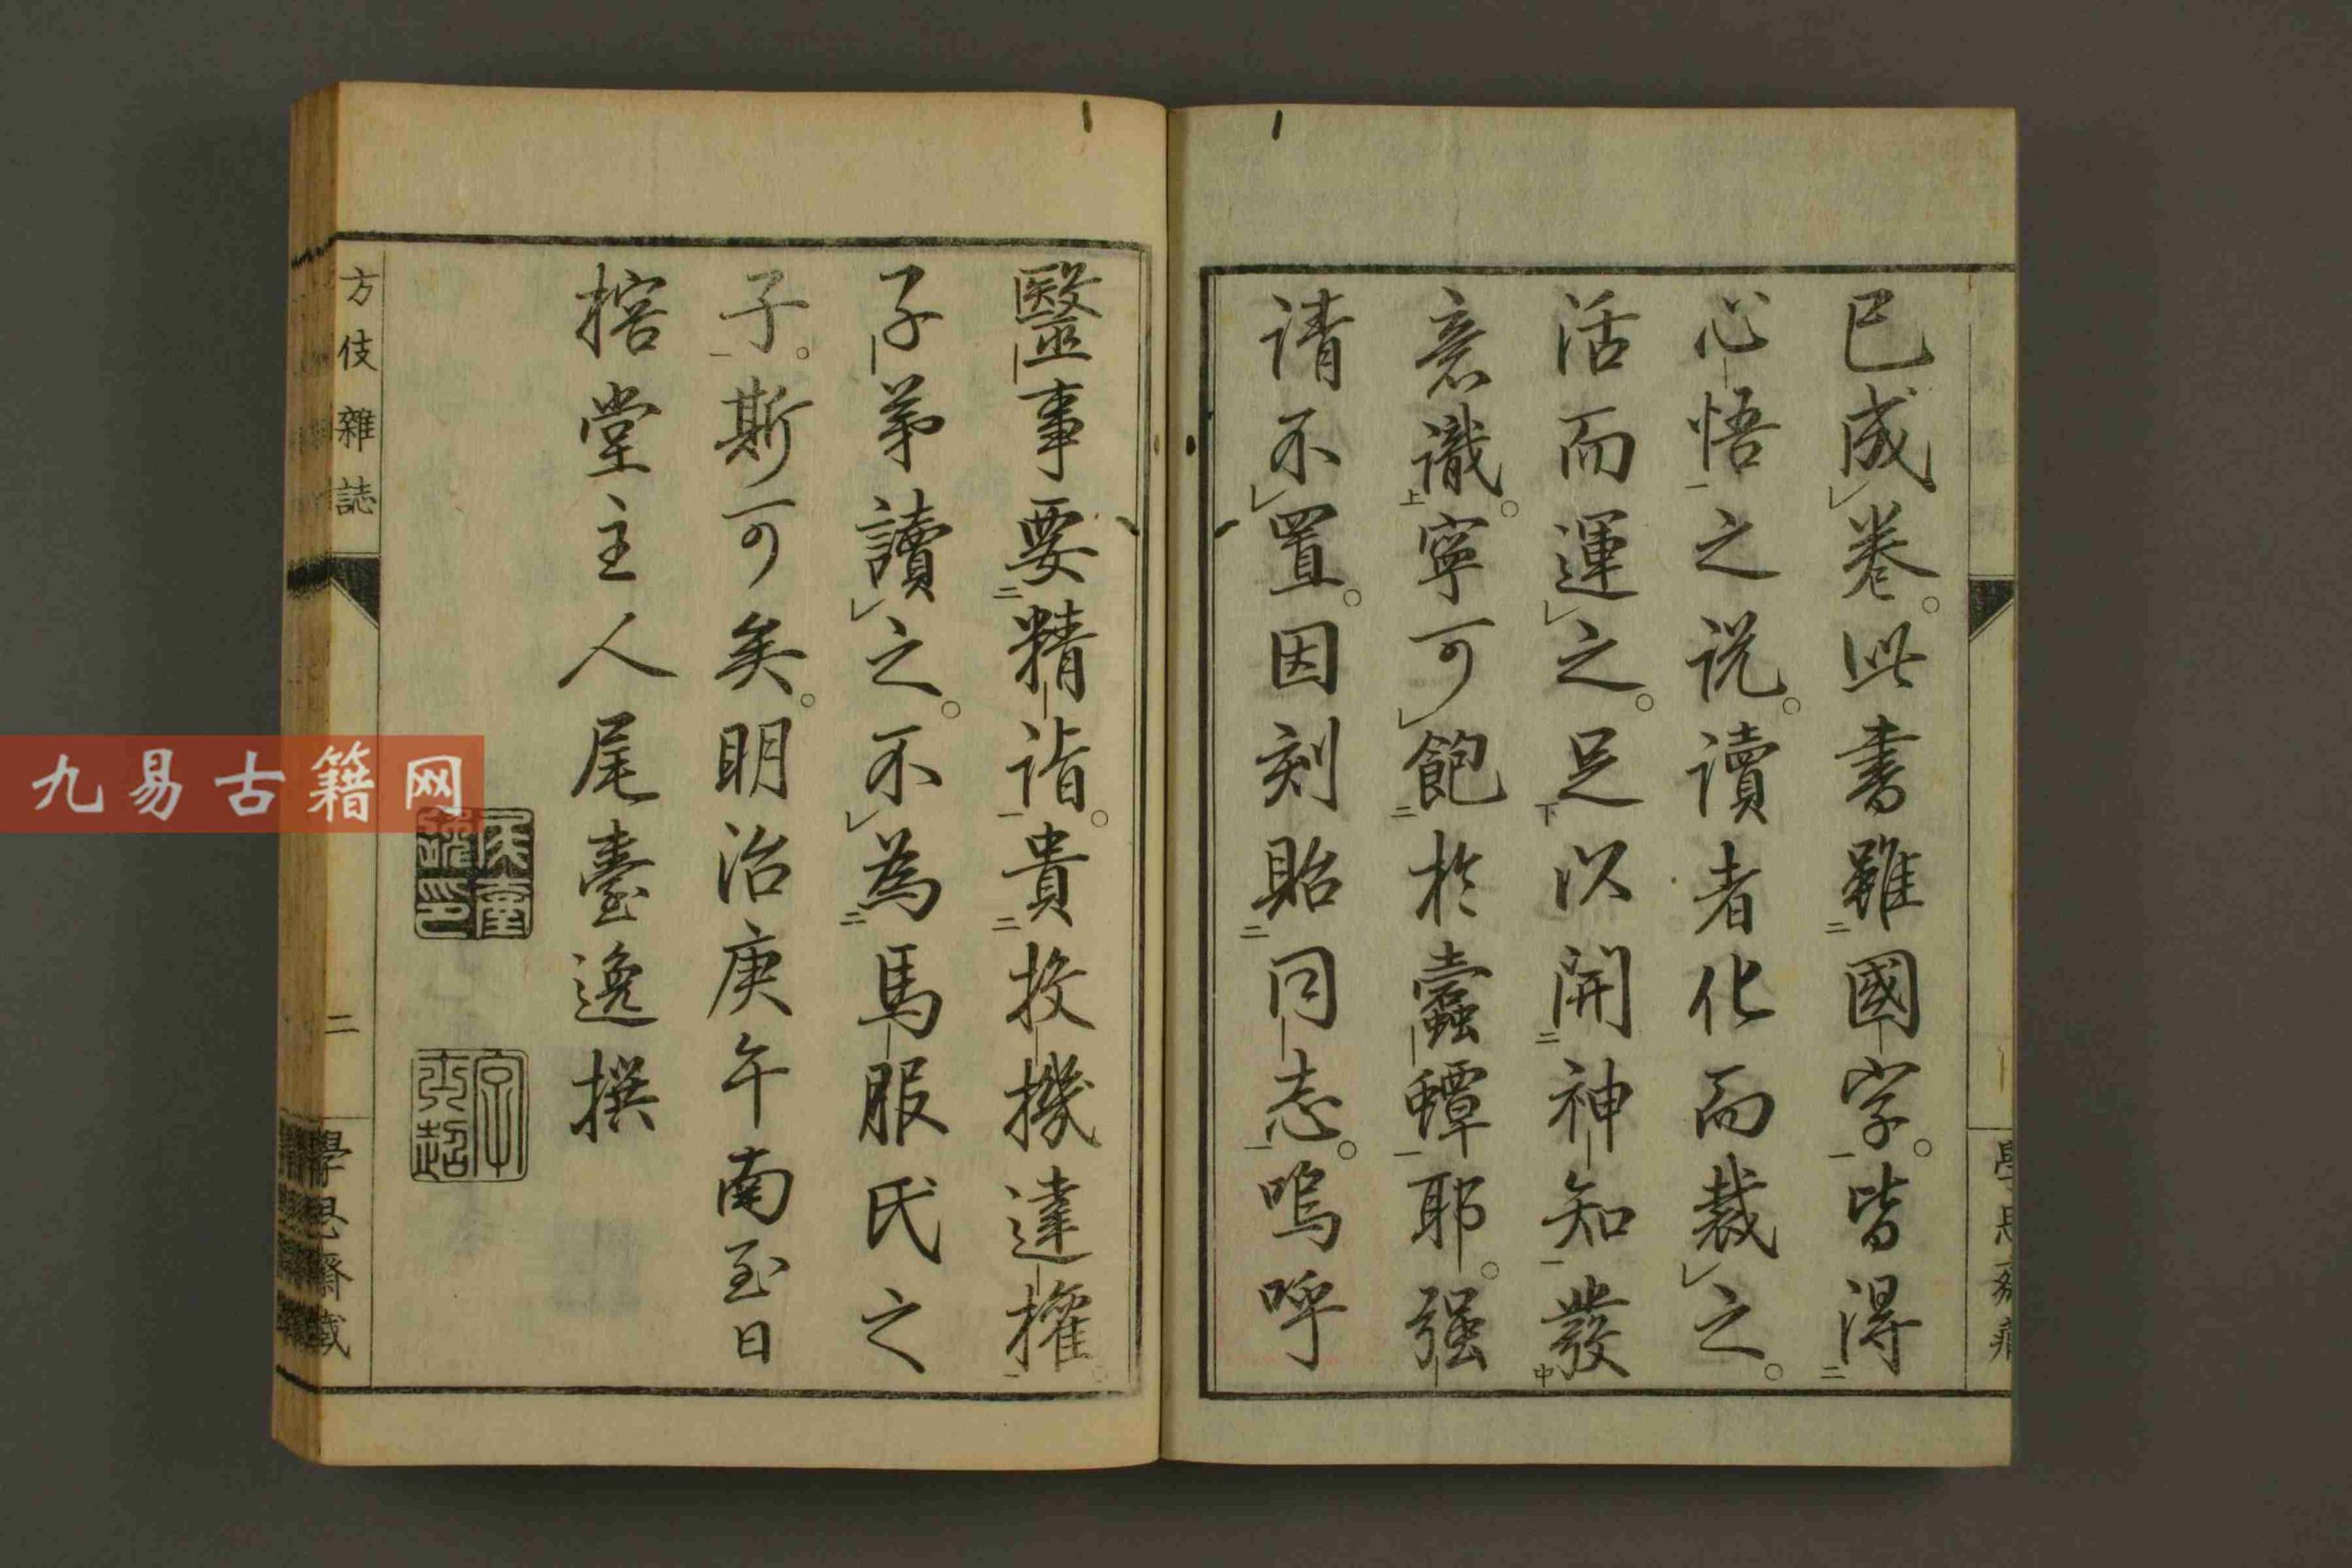 已成卷。此書雖國字。皆得
心悟之说。讀者化而裁之。
活而運之。足以開神知發
意識。寧可飽於蠹蟫耶。强
请不置。因刻貽同志。嗚呼
醫事要精詣。貴投機達權。
子弟讀之。不為馬服氏之
子。斯可矣。明治庚午南至日
榕堂主人尾臺逸撰
方伎雜誌
二
學思齋藏
九易古籍网